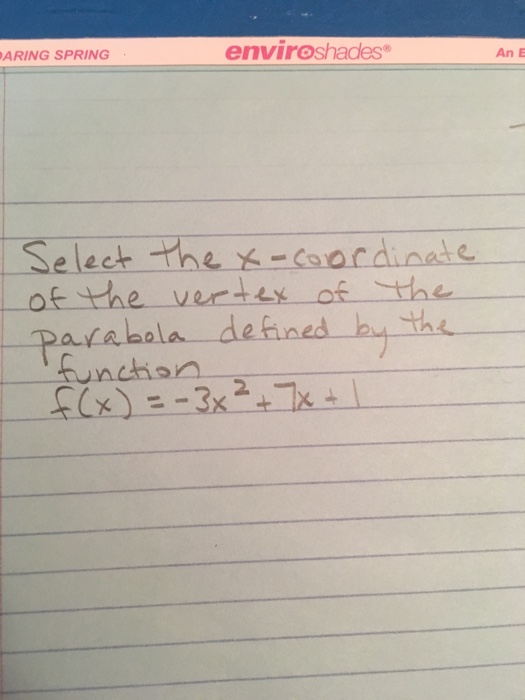 ARING SPRING enviroshades® An E
Select the x-coordinate
of the vertex of the
parabola defined by the
function
f(x) = -3x² + 7x + 1